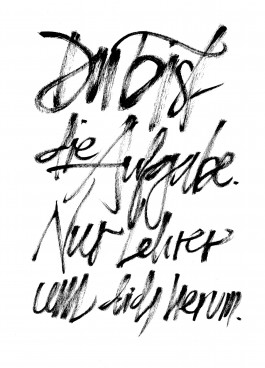 Du bist
die Aufgabe.
Nur Lehrer
um dich herum.